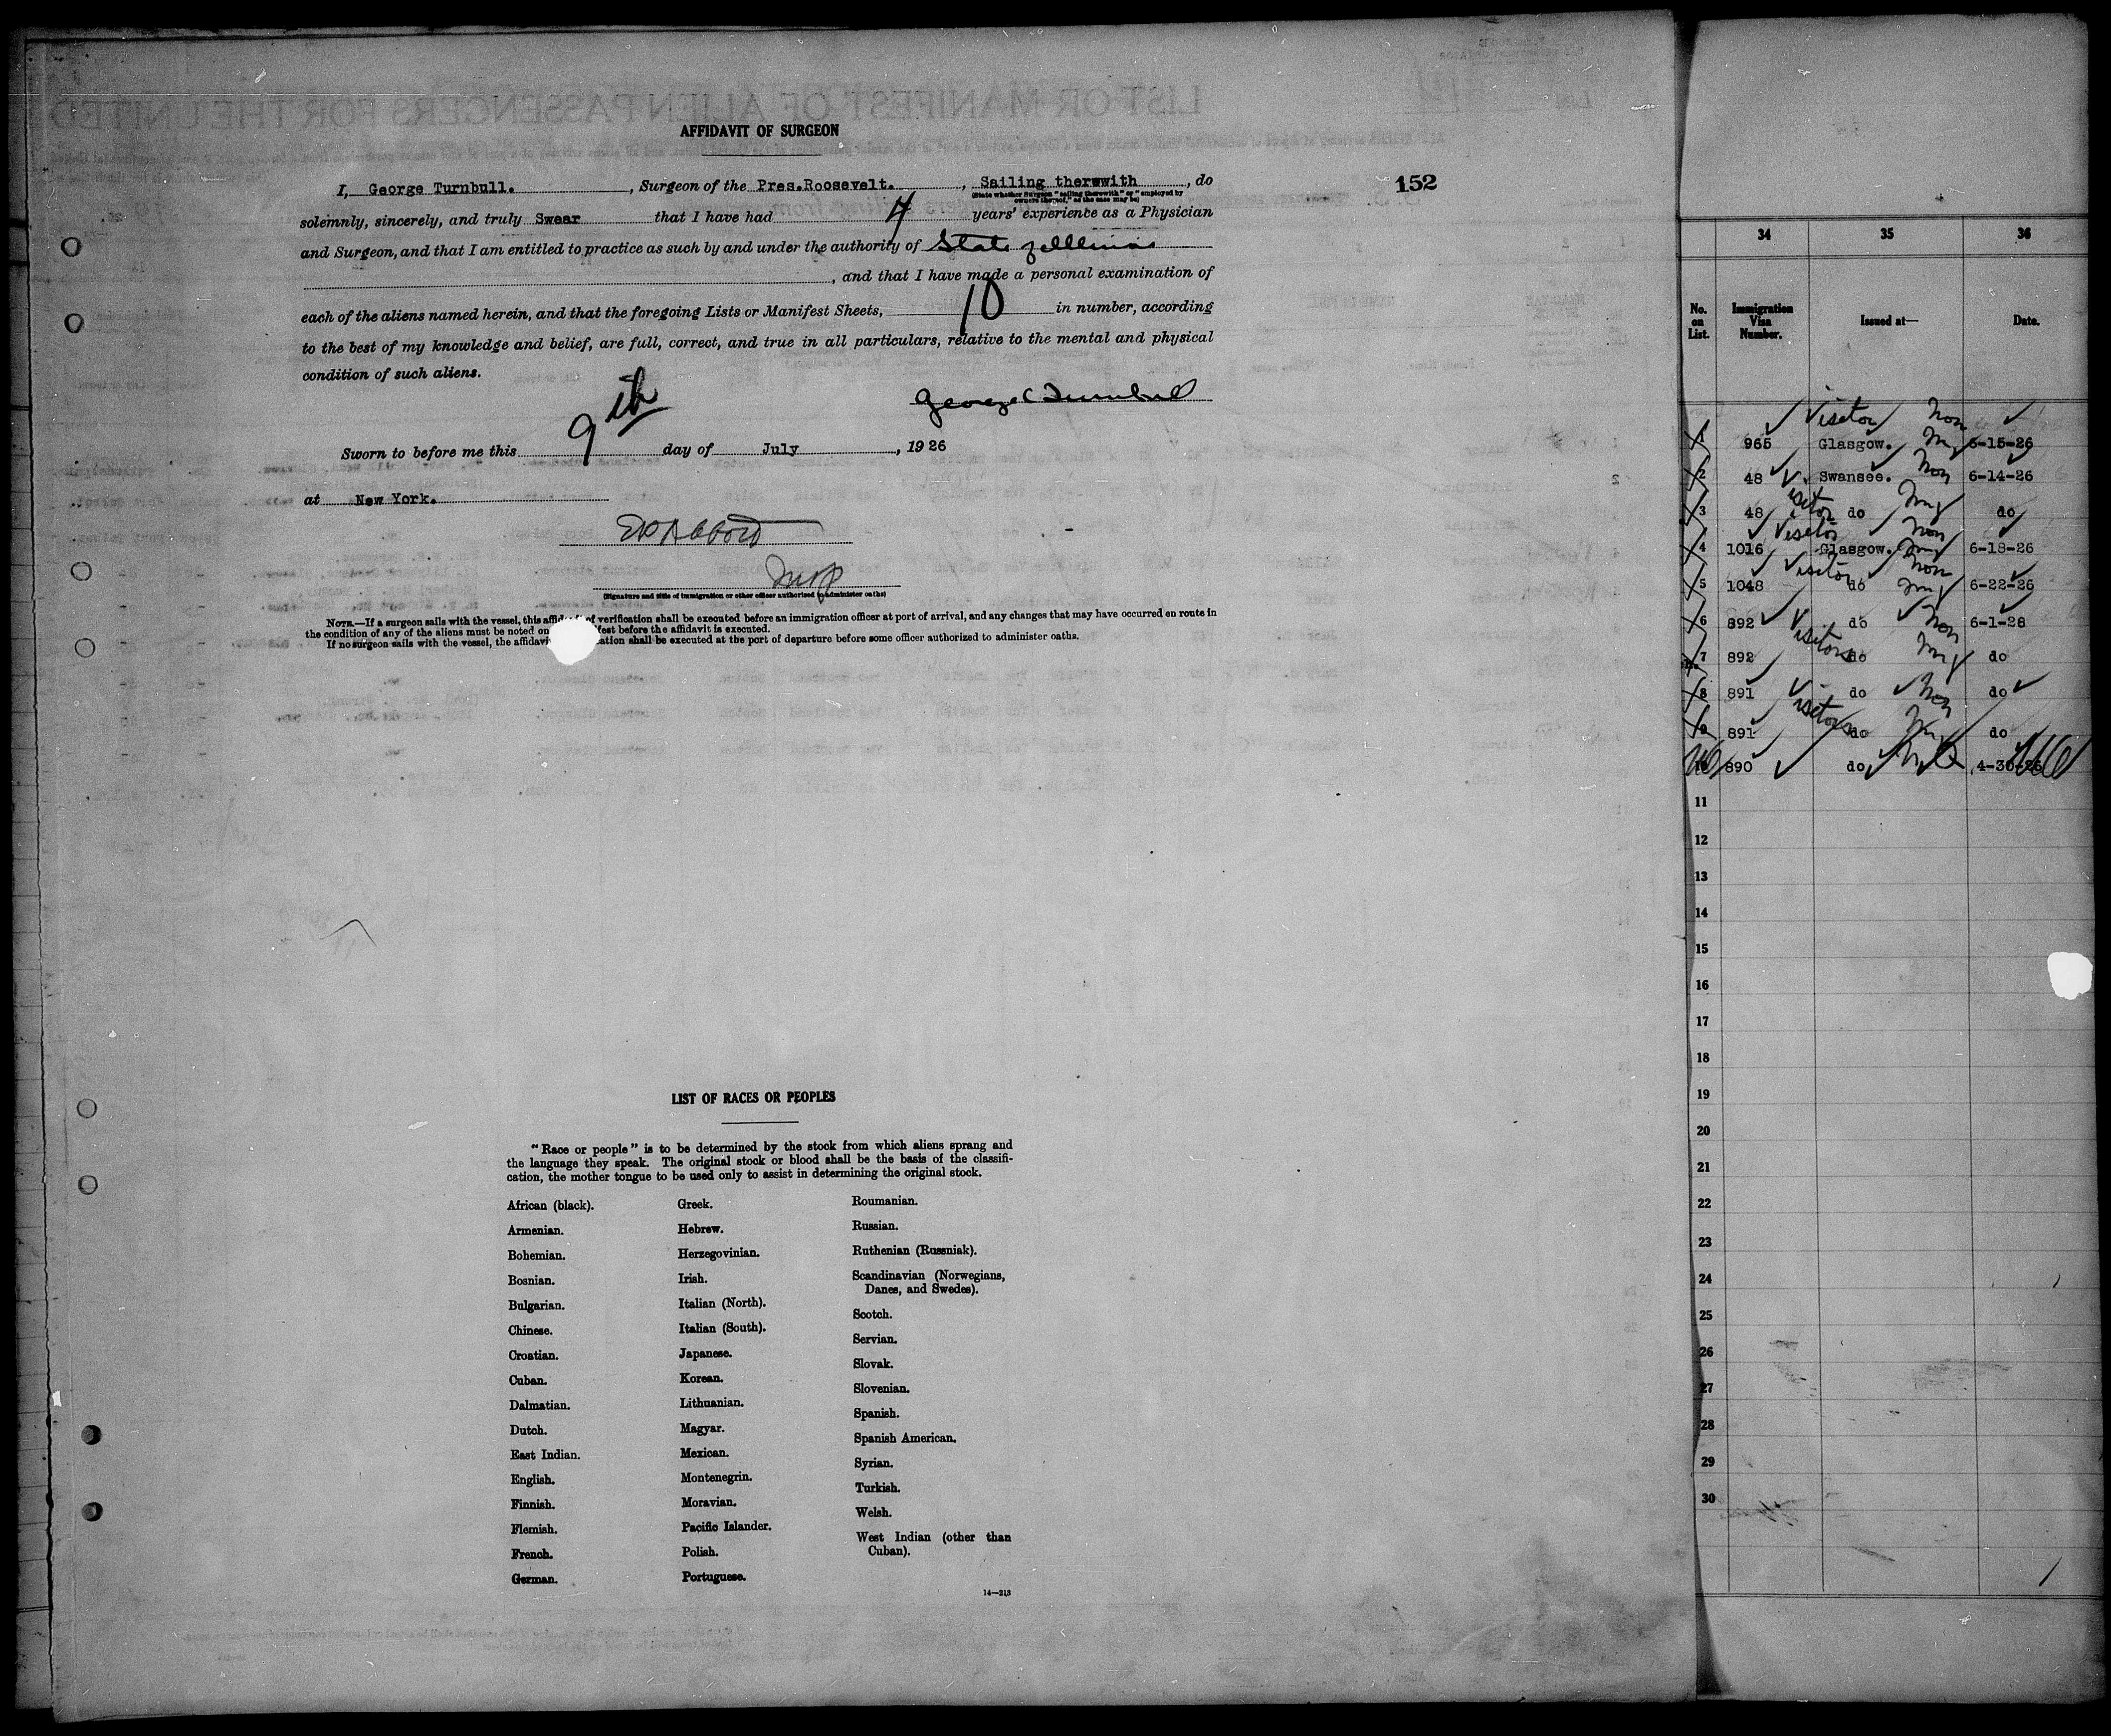 AFFIDAVIT OF SURGEON
I, George Turnbull. , Surgeon of the Pres.Roosevelt. , Sailing therwwith , do
(State whether Surgeon "sailing therewith" or "employed by
owners thereof," as the case may be)
152
solemnly, sincerely, and truly Swear that I have had 7 years' experience as a Physician
and Surgeon, and that I am entitled to practice as such by and under the authority of State of Illinois
, and that I have made a personal examination of
each of the aliens named herein, and that the foregoing Lists or Manifest Sheets, 10 in number, according
to the best of my knowledge and belief, are full, correct, and true in all particulars, relative to the mental and physical
condition of such aliens.
George Turnbull
Sworn to before me this 9th day of July , 1926
at New York.
(Signature and title of immigration or other officer authorized to administer oaths)
NOTE.—If a surgeon sails with the vessel, this affidavit of verification shall be executed before an immigration officer at port of arrival, and any changes that may have occurred en route in
the condition of any of the aliens must be noted on fest before the affidavit is executed.
If no surgeon sails with the vessel, the affidavi cation shall be executed at the port of departure before some officer authorized to administer oaths.
LIST OF RACES OR PEOPLES
"Race or people" is to be determined by the stock from which aliens sprang and
the language they speak. The original stock or blood shall be the basis of the classifi-
cation, the mother tongue to be used only to assist in determining the original stock.
African (black).
Armenian.
Bohemian.
Bosnian.
Bulgarian.
Chinese.
Croatian.
Cuban.
Dalmatian.
Dutch.
East Indian.
English.
Finnish.
Flemish.
French.
German.
Greek.
Hebrew.
Herzegovinian.
Irish.
Italian (North).
Italian (South).
Japanese.
Korean.
Lithuanian.
Magyar.
Mexican.
Montenegrin.
Moravian.
Pacific Islander.
Polish.
Portuguese.
Roumanian.
Russian.
Ruthenian (Russniak).
Scandinavian (Norwegians,
Danes, and Swedes).
Scotch.
Servian.
Slovak.
Slovenian.
Spanish.
Spanish American.
Syrian.
Turkish.
Welsh.
West Indian (other than
Cuban).
14—213
34 35 36
No. on List. Immigration Visa Number. Issued at— Date.
Visitor Non
1 965 Glasgow. Img 6-15-26
2 48 V. Swansee. Non 6-14-26
3 48 isitor do Img do
Visitor Non
4 1016 Glasgow. Img 6-18-26
Visitor Non
5 1048 do Img 6-22-26
6 892 V. do Non 6-1-26
7 892 isitors do Img do
8 891 V. do Non do
9 891 isitors do Img do
10 890 do 4-30-26
11
12
13
14
15
16
17
18
19
20
21
22
23
24
25
26
27
28
29
30